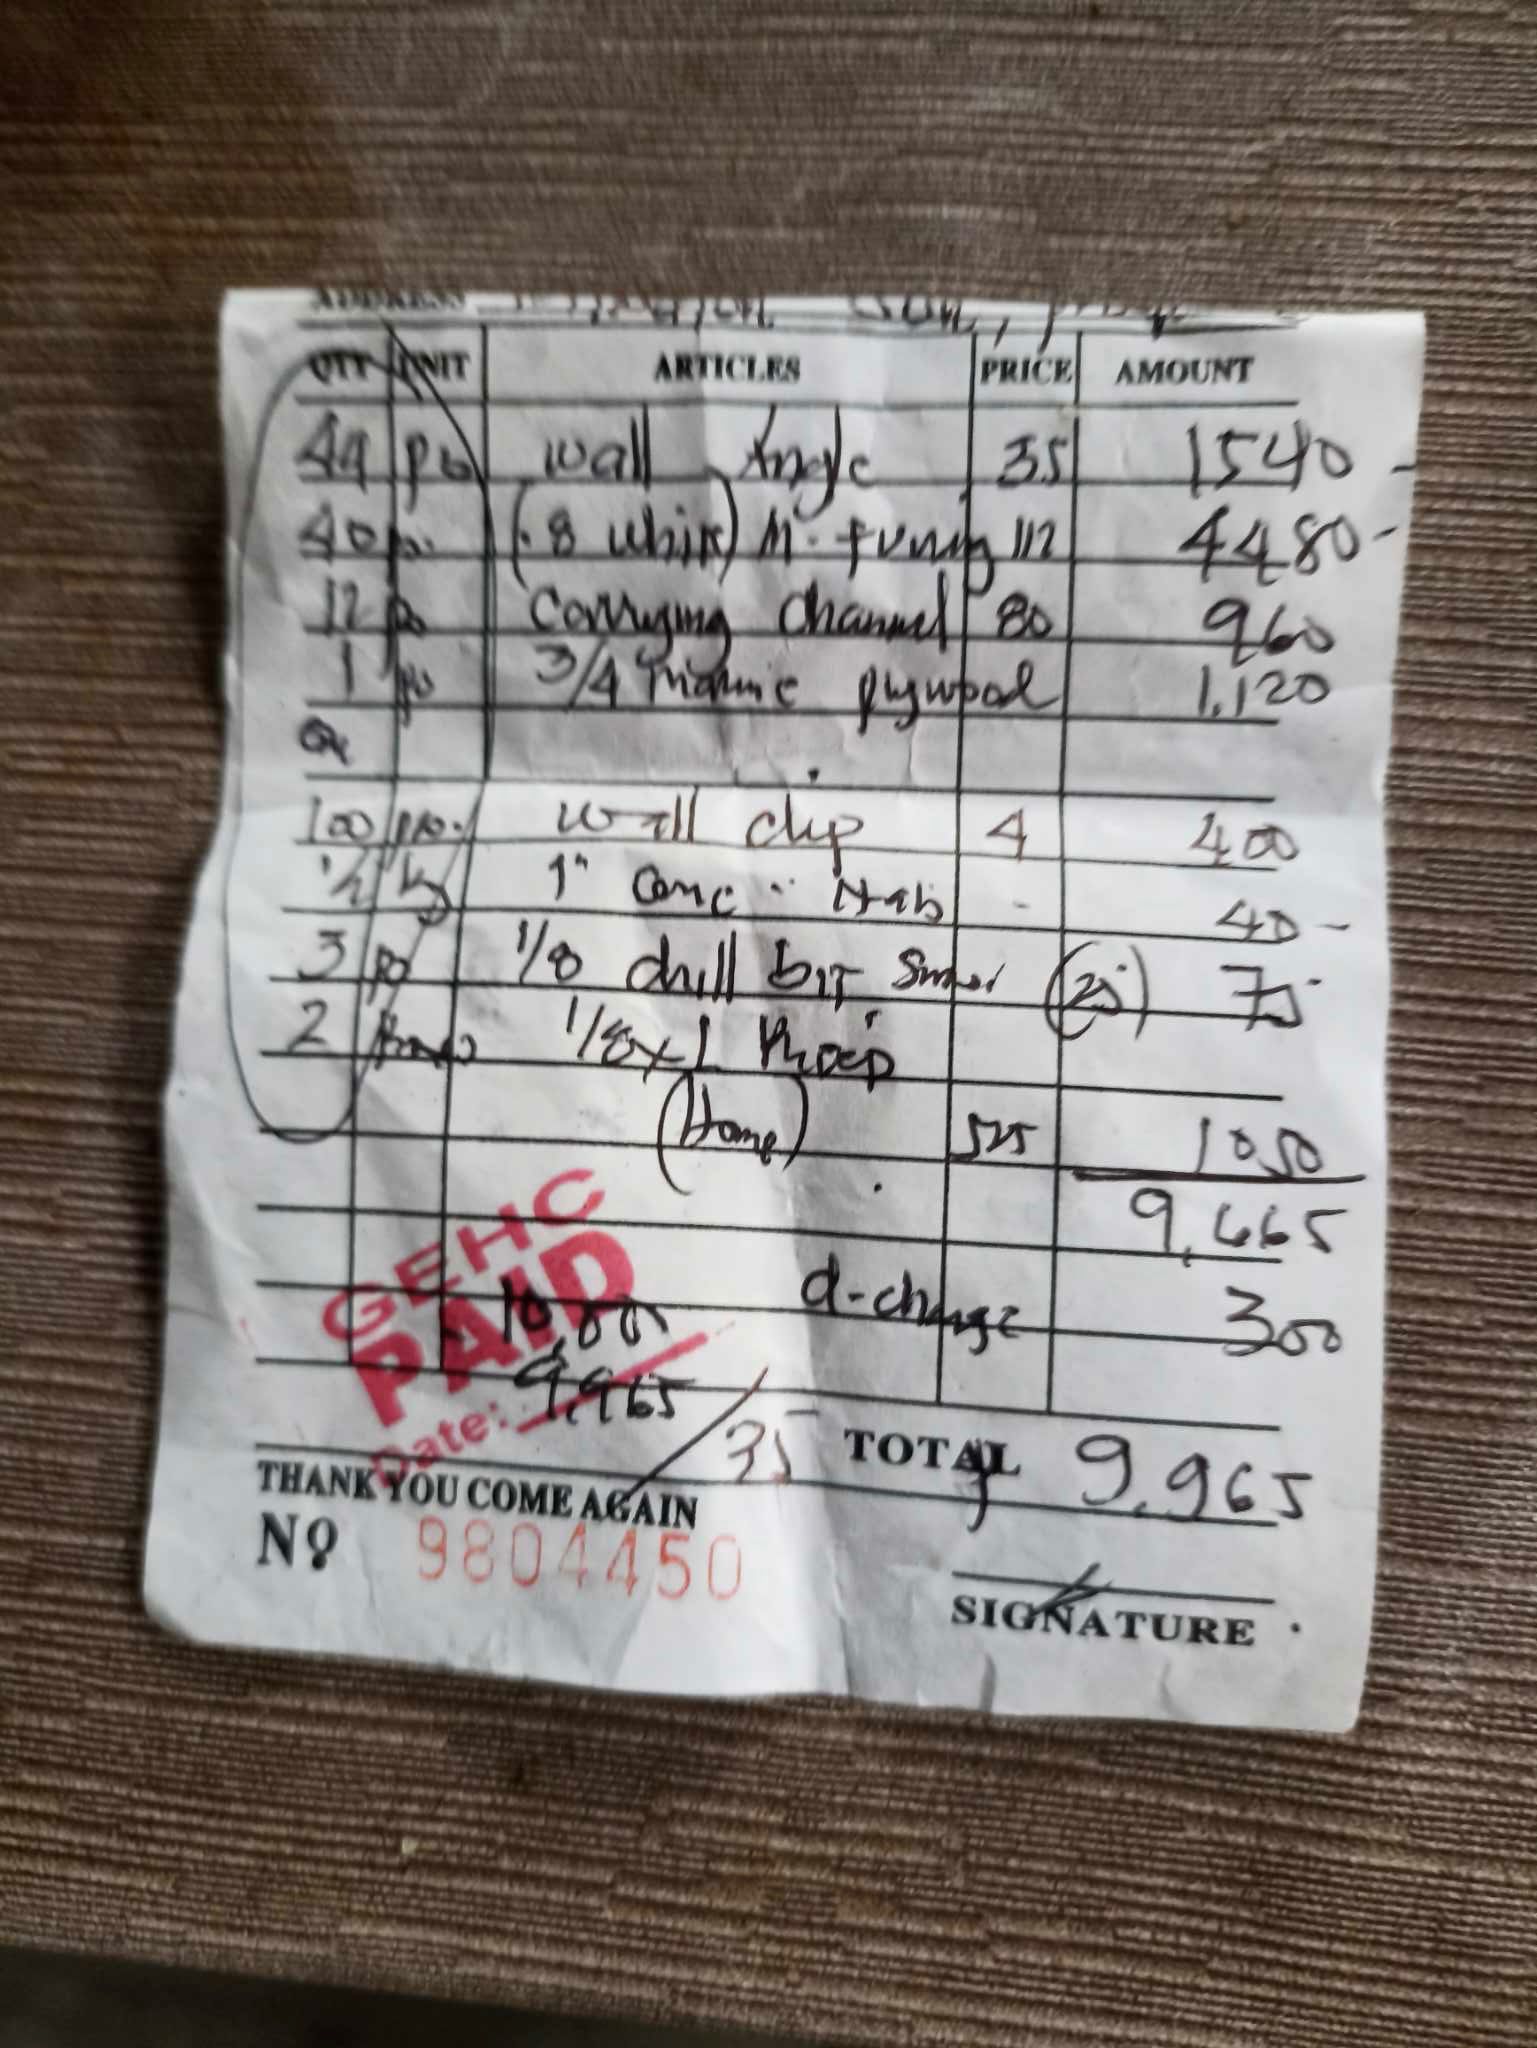 ADDRESS
QTY UNIT ARTICLES PRICE AMOUNT
44 pcs wall Angle 35 1540 -
40 pc. (.8 white) M. furring 112 4480 -
12 pc Carrying channel 80 960
1 pc 3/4 marine plywood 1,120
100 pcs. wall clip 4 400
1/2 kg 1" Conc .. Nails - 40 -
3 pc 1/8 drill bit (25) 75
2 1/8x1
(Home) 525 1050
9,665
GEHC
PAID
d-charge 300
10,000
9,965
Date:
35 TOTAL 9,965
THANK YOU COME AGAIN
No 9804450
SIGNATURE